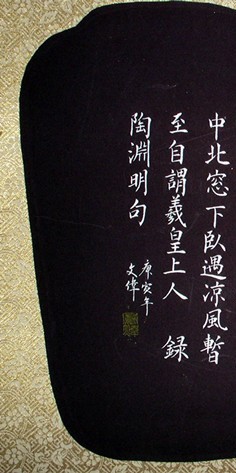 中北窓下臥遇凉風暫
至自謂羲皇上人 録
陶淵明句
庚寅年
文偉